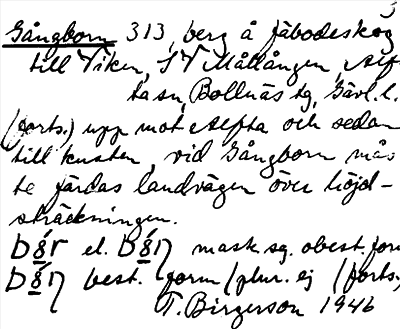 3
Gångborn 313, berg å fäbodeskog
till Viken, SV Mållången, Alf-
ta sn, Bollnäs tg, Gävl. l.
(forts.) upp mot Alfta och sedan
till kusten, vid Gångborn mås
te färdas landvägen över höjd-
sträckningen.
el. mask. sg. obest. form
best. form (plur. ej (forts.)
T. Birgerson 1946